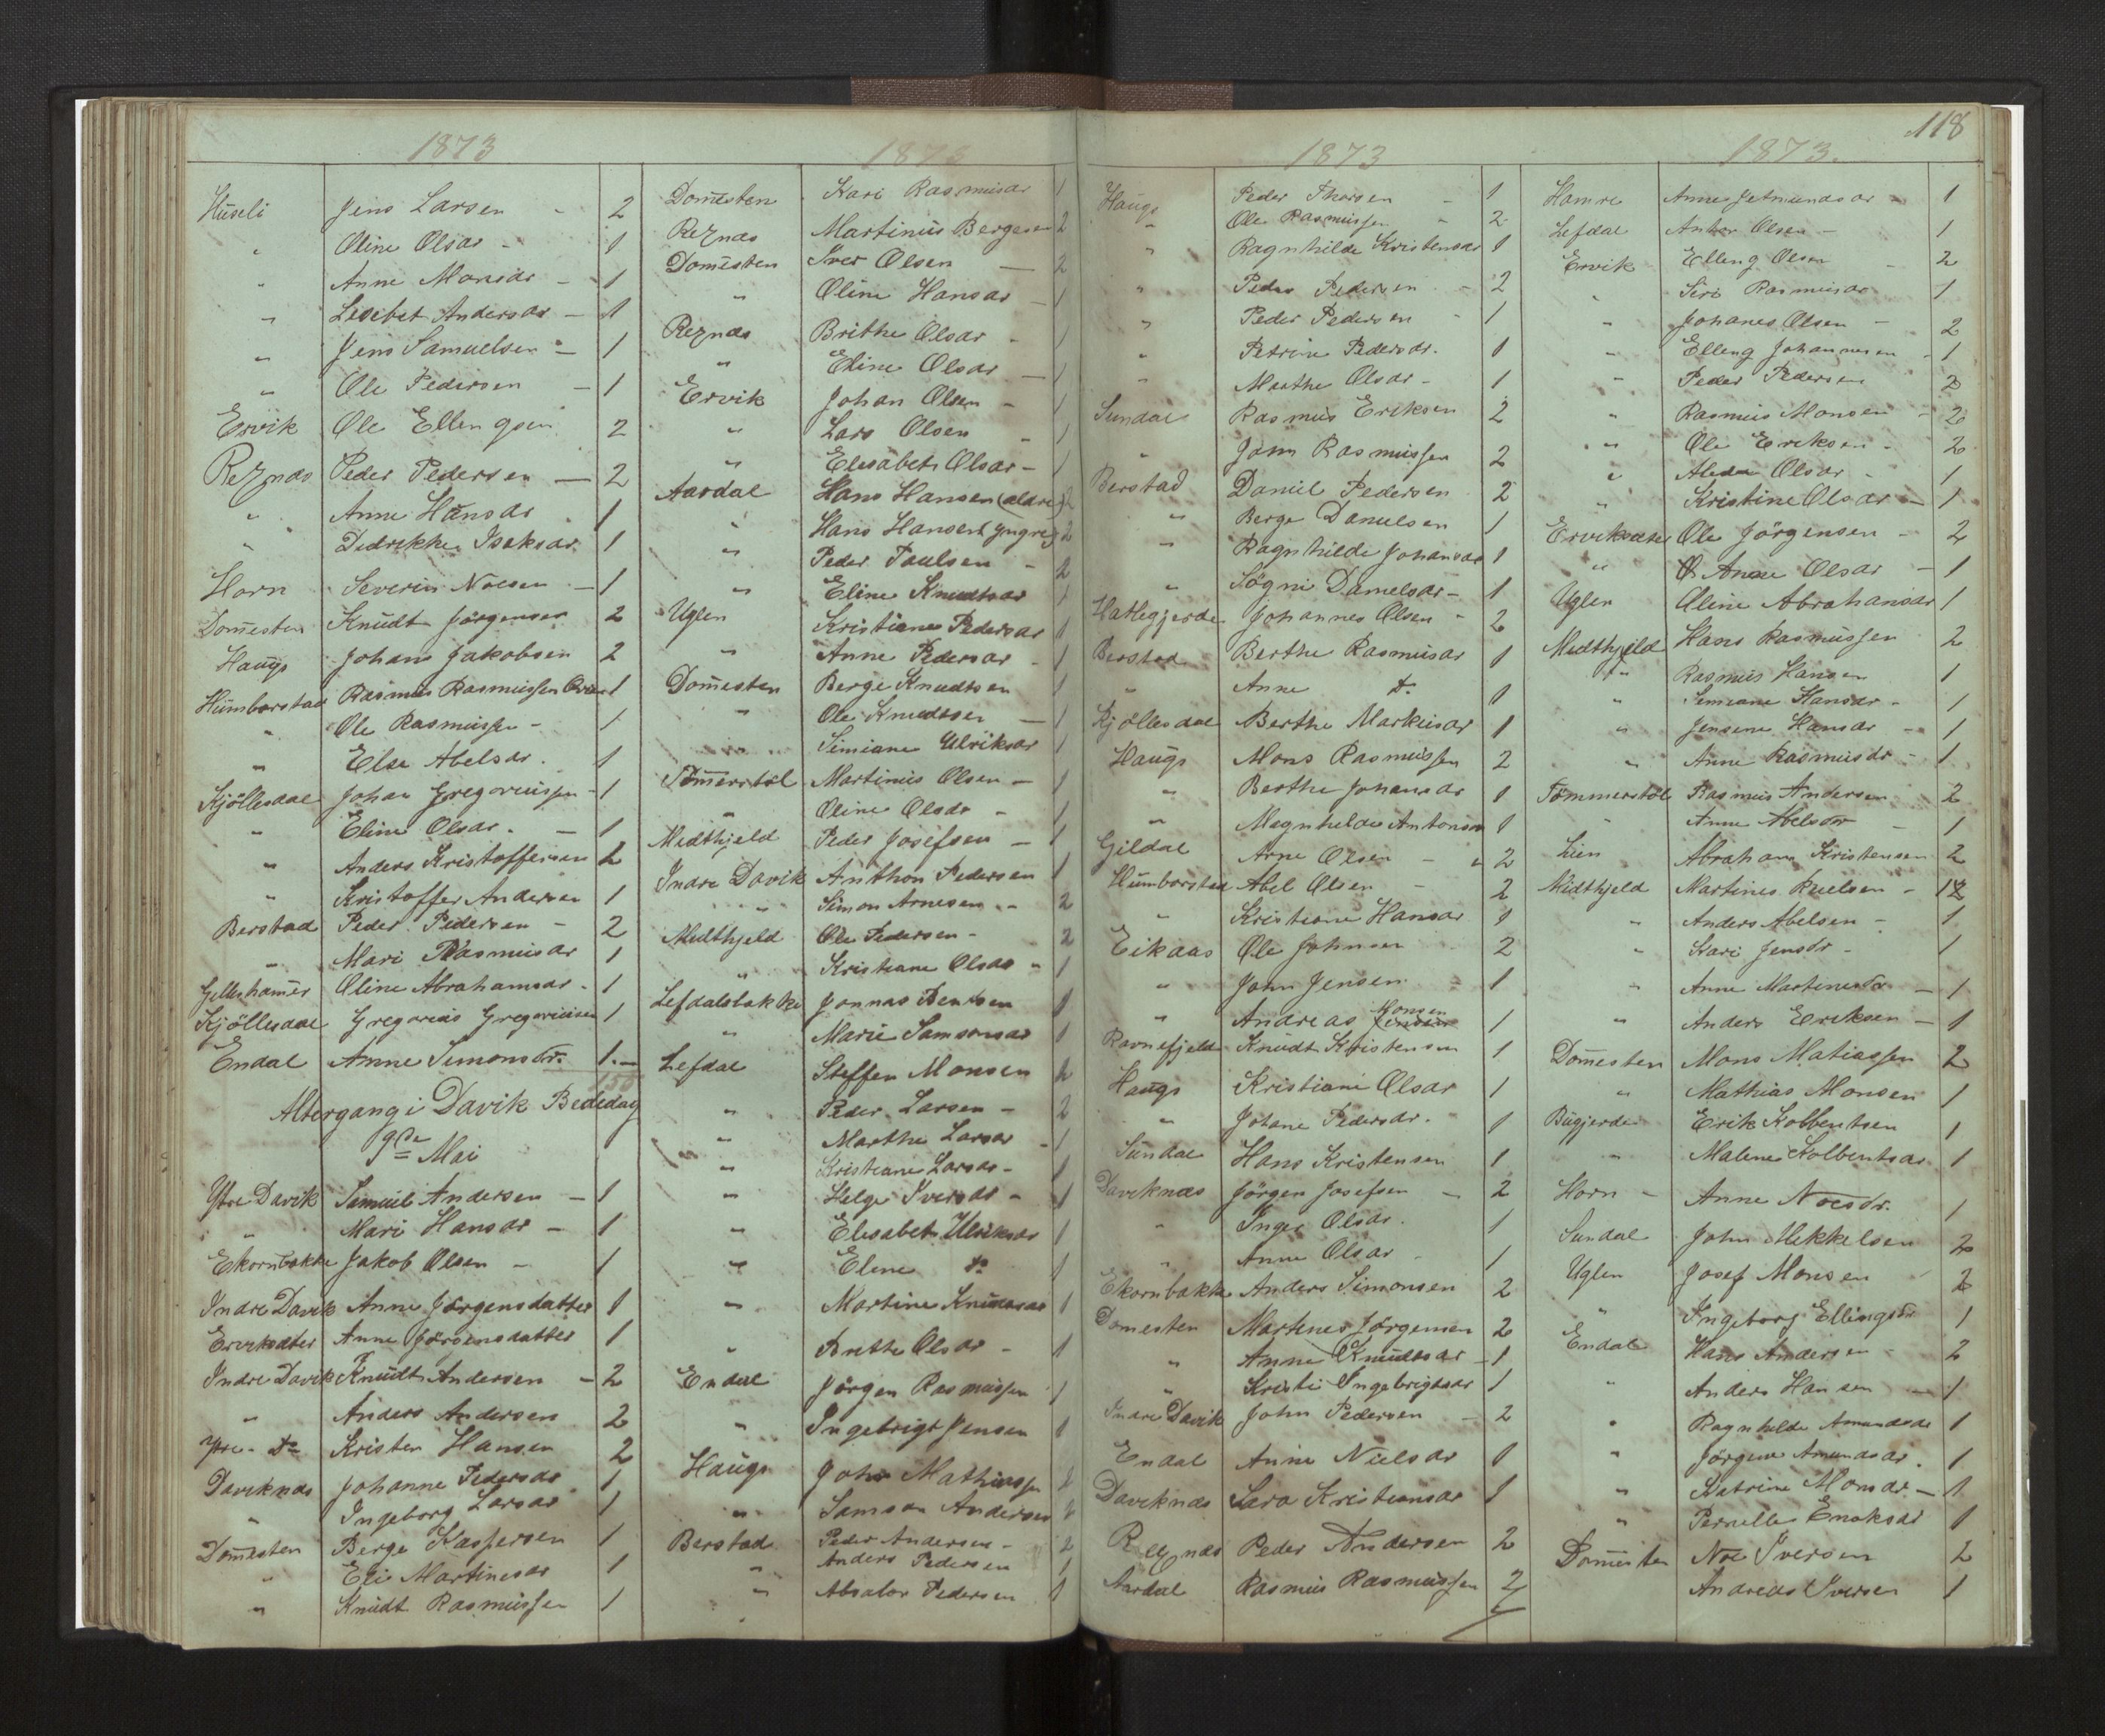 118
1873
Huseli Jens Larsen - 2
" Oline Olsdr - 1
" Anne Monsdr - 1
" Lisebet Andersdr - 1
" Jens Samuelsen - 1
" Ole Pedersen - 1
Ervik Ole Ellengsen 2
Rejnæs Peder Pedersen - 2
" Anne Hansdr 1
" Didrikke Isaksdr 1
Horn Severin Noesen - 1
Domesten Knudt Jörgensen 2
Haugs Johans Jakobsen 2
Humborstad Rasmus Rasmussen 1
" Ole Rasmussen - 1
" Else Abelsdr. 1
Kjöllesdal Johan Gregoriussen - 1
" Eline Olsdr. - 1
" Anders Kristoffersen 2
" Kristoffer Andersen 1
Berstad Peder Pedersen - 2
" Mari Rasmusdr 1
Gilleshamer Oline Abrahamsdr. - 1
Kjöllesdal Gregorius Gregoriussen 1
Endal Anne Simonsdr. 1.-
150
Altergang i Davik Bededag
9de Mai
Ytre Davik Samuel Andersen - 1
" Mari Hansdr - 1
Ekornbakke Jakob Olsen - 1
Indre Davik Anne Jörgensdatter 1
Erviksæter Anne Jörgensdatter 1
Indre Davik Knudt Andersen - 2
" Anders Andersen 2
Ytre do Kristen Hansen 2
Daviknæs Johanne Pedersdr 1
" Ingeborg Larsdr 1
Domesten Berge Kaspersen 1
" Eli Martinesdr 1
" Knudt Rasmussen 1
1873
Domesten Kari Rasmusdr 1
Rejnæs Martinus Bergesen 2
Domesten Iver Olsen - 2
" Oline Hansdr - 1
Rejnæs Brithe Olsdr - 1
" Eline Olsdr - 1
Ervik Johan Olsen - 1
" Lars Olsen - 1
" Elesabet Olsdr - 1
Aardal Hans Hansen (ældre) 2
" Hans Hansen (yngre) 2
" Peder Paulsen - 2
" Eline Knudtsdr 1
Uglen Kristiane Pedersdr 1
" Anne Pedersdr - 1
Domesten Berge Knudtsen 1
" Ole Knudtsen - 1
" Simiane Ulriksdr 1
Tömmerstöl Martinus Olsen - 1
" Oline Olsdr - 1
Midthjeld Peder Josefsen - 1
Indre Davik Anthon Pedersen 1
" Simon Arnesen - 2
Midthjeld Ole Pedersen - 2
" Kristiane Olsdr - 1
Lefdalsbakke Jonnas Bentsen 1
" Marie Samsonsdr 1
Lefdal Steffen Monsen 2
" Peder Larsen - 2
" Marthe Larsdr - 1
" Kristiane Larsdr - 1
" Helge Iversdr - 1
" Elesabet Ulriksdr 1
" Elene do 1
" Martine Knudtsdr 1
" Brithe Olsdr - 1
Endal Jörgen Rasmussen 1
" Ingebrigt Jensen 1
Haugs John Mathiassen 2
" Samson Andersen 2
Berstad Peder Andersen - 2
" Anders Pedersen 1
" Absalon Pedersen 1
1873
Haugs Peder Thorsen - 1
" Ole Rasmussen - 2
" Ragnhilde Kristensdr 1
" Peder Pedersen - 2
" Peder Pedersen - 1
" Petrine Pedersdr. 1
" Marthe Olsdr - 1
Sundal Rasmus Eriksen 2
" Jonn Rasmussen 2
Berstad Daniel Pedersen 2
" Berge Danielsen 1
" Ragnhilde Johansdr 1
" Sögni Danielsdr - 1
Hatlegjerde Johannes Olsen - 2
Berstad Berthe Rasmusdr 1
" Anne do 1
Kjöllesdal Berthe Markusdr 1
Haugs Mons Rasmussen 2
" Berthe Johansdr 1
" Magnhilde Antonsdr 1
Gildal Arne Olsen - 2
Humborstad Abel Olsen - 2
" Kristiane Hansdr 1
Eikaas Ole Johnsen 2
" John Jensen 1
" Andreas Monsen 1
Ravnefjeld Knudt Kristensen 1
Haugs Kristiane Olsdr 1
" Johane Pedersdr. 1
Sundal Hans Kristensen 1
Daviknæs Jörgen Josefsen - 2
" Inger Olsdr. 1
" Anne Olsdr - 1
Ekornbakke Anders Simonsen 2
Domesten Martines Jörgensen 2
" Anne Knudtsdr - 1
" Kristi Ingebrigtsdr 1
Indre Davik John Pedersen - 2
Endal Anne Nielsdr 1
Daviknæs Sara Kristiansdr 1
Rejnæs Peder Andersen 2
Aardal Rasmus Rasmussen 2
1873.
Hamre Anne Jetmundsdr - 1
Lefdal Anton Olsen - 1
Ervik Elleng Olsen - 2
" Siri Rasmusdr 1
" Johanes Olsen - 2
" Elleng Johannesen - 1
" Peder Pedersen 2
" Rasmus Monsen - 2
" Ole Eriksen - 2
" Alida Olsdr - 1
" Kristine Olsdr - 1
Erviksæter Ole Jörgensen - 2
" Anne Olsdr - 1
Uglen Oline Abrahamsdr 1
Midthjeld Hans Rasmussen 2
" Rasmus Hansen 1
" Simiane Hansdr - 1
" Jensene Hansdr - 1
" Anne Rasmusdr - 1
Tömmerstöl Rasmus Andersen 2
" Anne Abelsdr - 1
Lien Abraham Kristensen 2
Midthjeld Martines Paulsen - 2
" Anders Abelsen - 1
" Kari Jensdr - 1
" Anne Martinesdr - 1
" Anders Eriksen - 1
Domesten Mons Matiassen 2
" Mathias Monsen 1
Bugjerde Erik Kolbentsen 1
" Malene Kolbentsdr 1
Horn - Anne Noesdr. 1
Sundal John Mikkelsen 2
Uglen Josef Monsen 2
" Ingeborg Ellingsdr 1
Endal Hans Andersen - 2
" Anders Hansen - 1
" Ragnhilde Amundsdr 1
" Jörgine Amundsdr. 1
" Katrine Monsdr - 1
" Pernille Enoksdr 1
Domesten Noe Iversen 2
Andreas Iversen 1